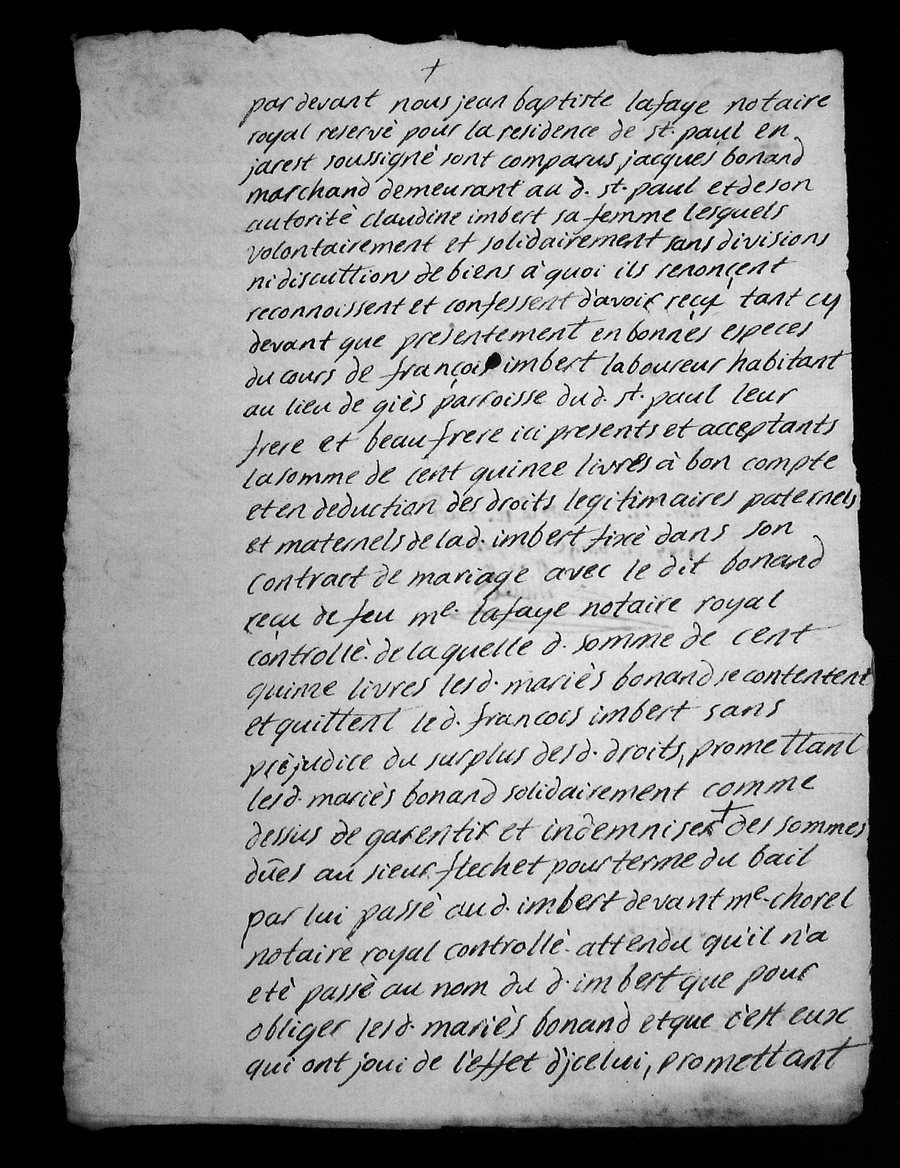 +
par devant nous jean baptiste lafaye notaire
royal reservè pour la residence de st. paul en
jarest soussignè sont comparus jacques bonand
marchand demeurant au d. st. paul et de son
autoritè claudine imbert sa femme lesquels
volontairement et solidairement sans divisions
ni discuttions de biens à quoi ils renoncent
reconnoissent et confessent d'avoir reçu tant cy
devant que presentement en bonnès especes
du cours de françois imbert laboureur habitant
au lieu de giès parroisse du d. st. paul leur
frere et beau frere ici presents et acceptants
la somme de cent quinze livres à bon compte
et en deduction des droits legitimaires paternels
et maternels de la d. imbert fixè dans son
contract de mariage avec le dit bonand
reçu de feu me. lafaye notaire royal
controllè. de la quelle d. somme de cent
quinze livres les d. mariès bonand se contentent
et quittent le d. francois imbert sans
prejudice du surplus des d. droits, promettant
les d. mariès bonand solidairement comme
dessus de garentir et indemniser + des sommes
dües au sieur flechet pour terme du bail
par lui passè au d. imbert devant me. chorel
notaire royal controllè. attendu qu'il n'a
etè passè au nom du d. imbert que pour
obliger les d. mariès bonand et que c'est eux
qui ont joui de l'effet d'jcelui, promettant